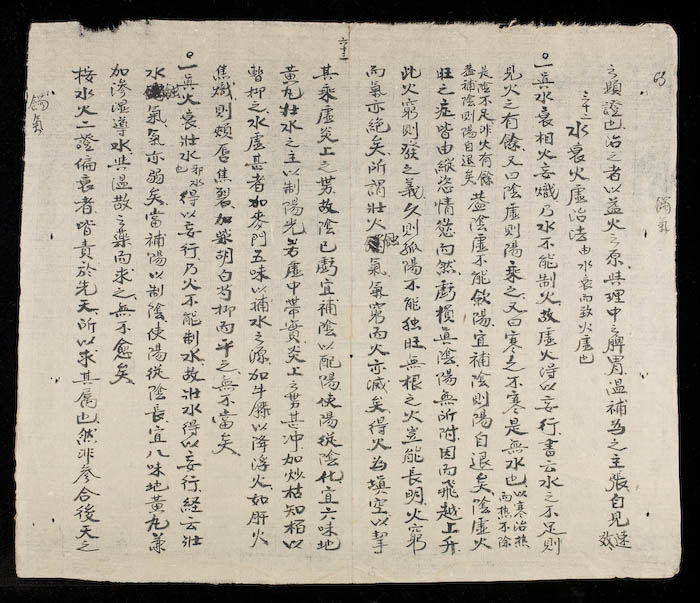 之類證也治之者以益火之原與理中之脾胃溫補為之主張自見速效
水衰火虛治法由水衰而致火虛也
一真水衰相火妄熾乃水不能制火故虛火得以妄行書云水之不足則
見火之有餘又曰陰虛則陽乘之又曰寒之不寒是無水也以寒治熱而熱不除
是陰不足非火有餘蓋補陰則陽自退矣蓋陰虛不能斂陽宜補陰則陽自退矣陰虛火
旺之症皆由縱慾情慾而然虧損真陰陽無所附因而飛越上升
此火窮則發之義久則孤陽不能独旺無根之火豈能長明火窮
而氣亦絕矣所謂壮火蝕氣氣窮而火亦滅矣得火為填空以挈
六十三
其乘虛炎上之勢故陰已虧宜補陰以配陽使陽從陰化宜六味地
黃丸壮水之主以制陽光若虛中帶實炎上之勢甚冲加炒枯知柏以
暫抑之水虛甚者加麥門五味以補水之源加牛膝以降浮火如肝火
焦熾則頰唇焦裂加柴胡白芍抑而平之無不當矣
一真火衰壮水邪水也得以妄行乃火不能制水故壮水得以妄行経云壮
水蝕氣氣亦弱矣當補陽以制陰使陽從陰長宜八味地黃丸兼
加滲湿導水與溫散之藥而求之無不愈矣
按水火二證偏衰者皆責於先天所以求其属也然非參合後天之